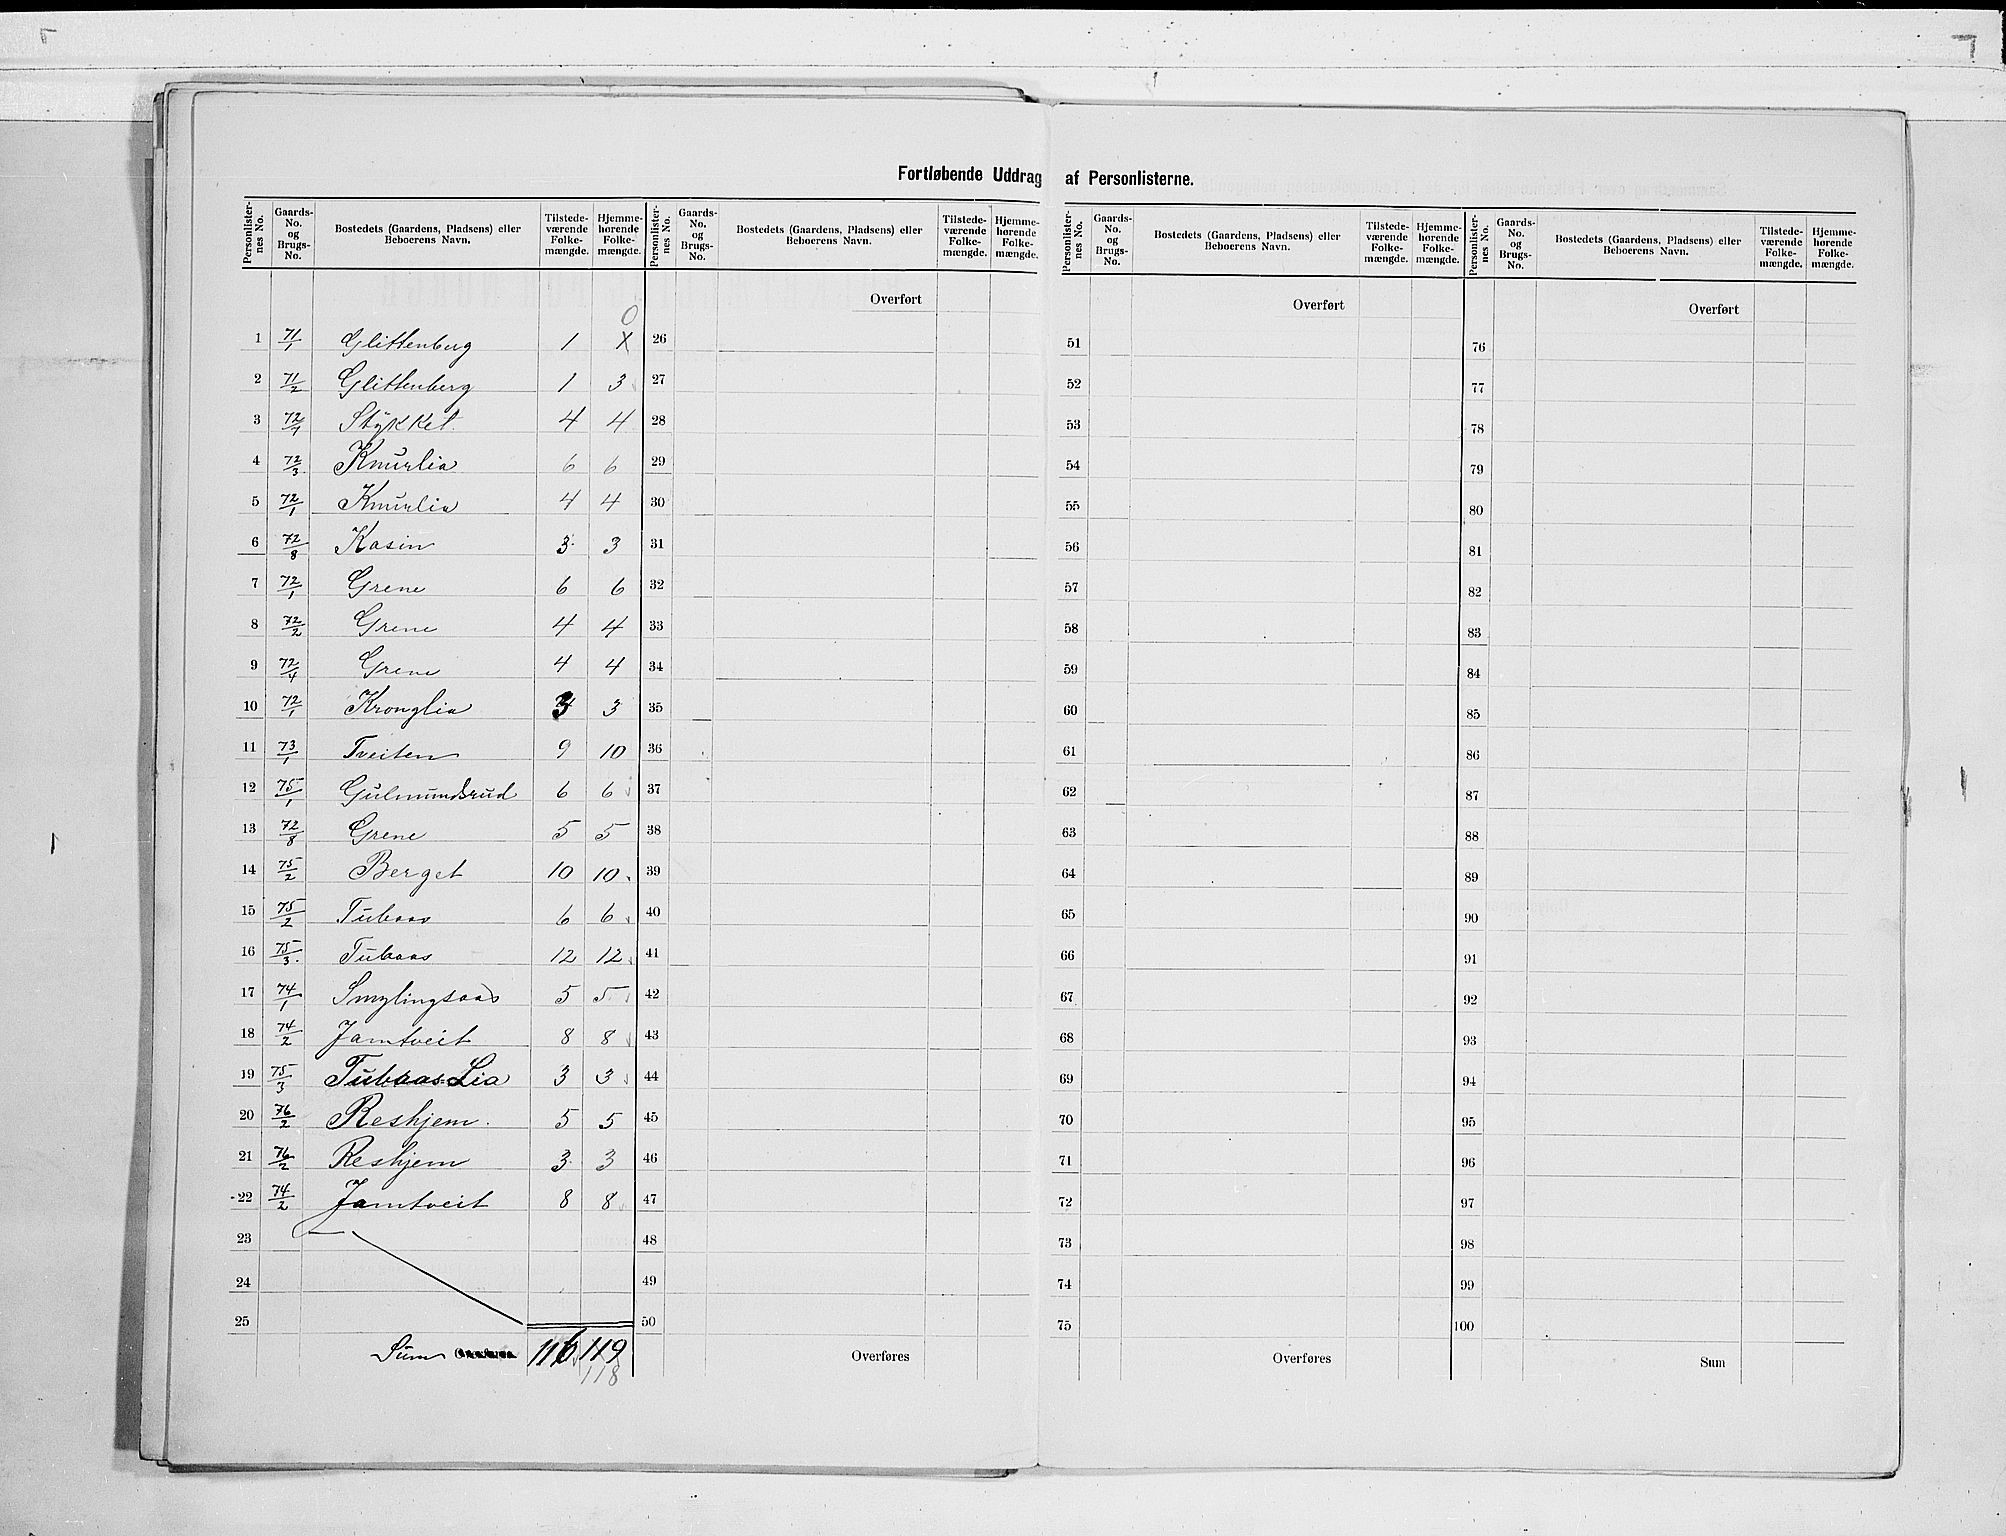 Fortløbende Uddrag af Personlisterne.
Personlister-nes No. | Gaards-No. og Brugs-No. | Bostedets (Gaardens, Pladsens) eller Beboerens Navn. | Tilstede-værende Folke-mængde. | Hjemme-hørende Folke-mængde.
0
1 71/1 Glittenberg 1 X
2 71/2 Glittenberg 1 3
3 72/7 Stykket 4 4
4 72/3 Knurlia 6 6
5 72/1 Knurlia 4 4
6 72/8 Kasin 3 3
7 72/1 Grene 6 6
8 72/2 Grene 4 4
9 72/4 Grene 4 4
10 72/1 Kronglia 3 3
11 73/1 Tveiten 9 10
12 75/1 Gulmundsrud 6 6
13 72/8 Grene 5 5
14 75/2 Berget 10 10
15 75/2 Tubaas 6 6
16 75/3 Tubaas 12 12
17 74/1 Smylingsaas 5 5
18 74/2 Jamtveit 8 8
19 75/3 Tubaas Lia 3 3
20 76/2 Reshjem 5 5
21 76/2 Reshjem 3 3
22 74/2 Jamtveit 8 8
23
24
25
Sum 116 119
118
Personlister-nes No. | Gaards-No. og Brugs-No. | Bostedets (Gaardens, Pladsens) eller Beboerens Navn. | Tilstede-værende Folke-mængde. | Hjemme-hørende Folke-mængde.
Overført
26
27
28
29
30
31
32
33
34
35
36
37
38
39
40
41
42
43
44
45
46
47
48
49
50
Overføres
Personlister-nes No. | Gaards-No. og Brugs-No. | Bostedets (Gaardens, Pladsens) eller Beboerens Navn. | Tilstede-værende Folke-mængde. | Hjemme-hørende Folke-mængde.
Overført
51
52
53
54
55
56
57
58
59
60
61
62
63
64
65
66
67
68
69
70
71
72
73
74
75
Overføres
Personlister-nes No. | Gaards-No. og Brugs-No. | Bostedets (Gaardens, Pladsens) eller Beboerens Navn. | Tilstede-værende Folke-mængde. | Hjemme-hørende Folke-mængde.
Overført
76
77
78
79
80
81
82
83
84
85
86
87
88
89
90
91
92
93
94
95
96
97
98
99
100
Sum